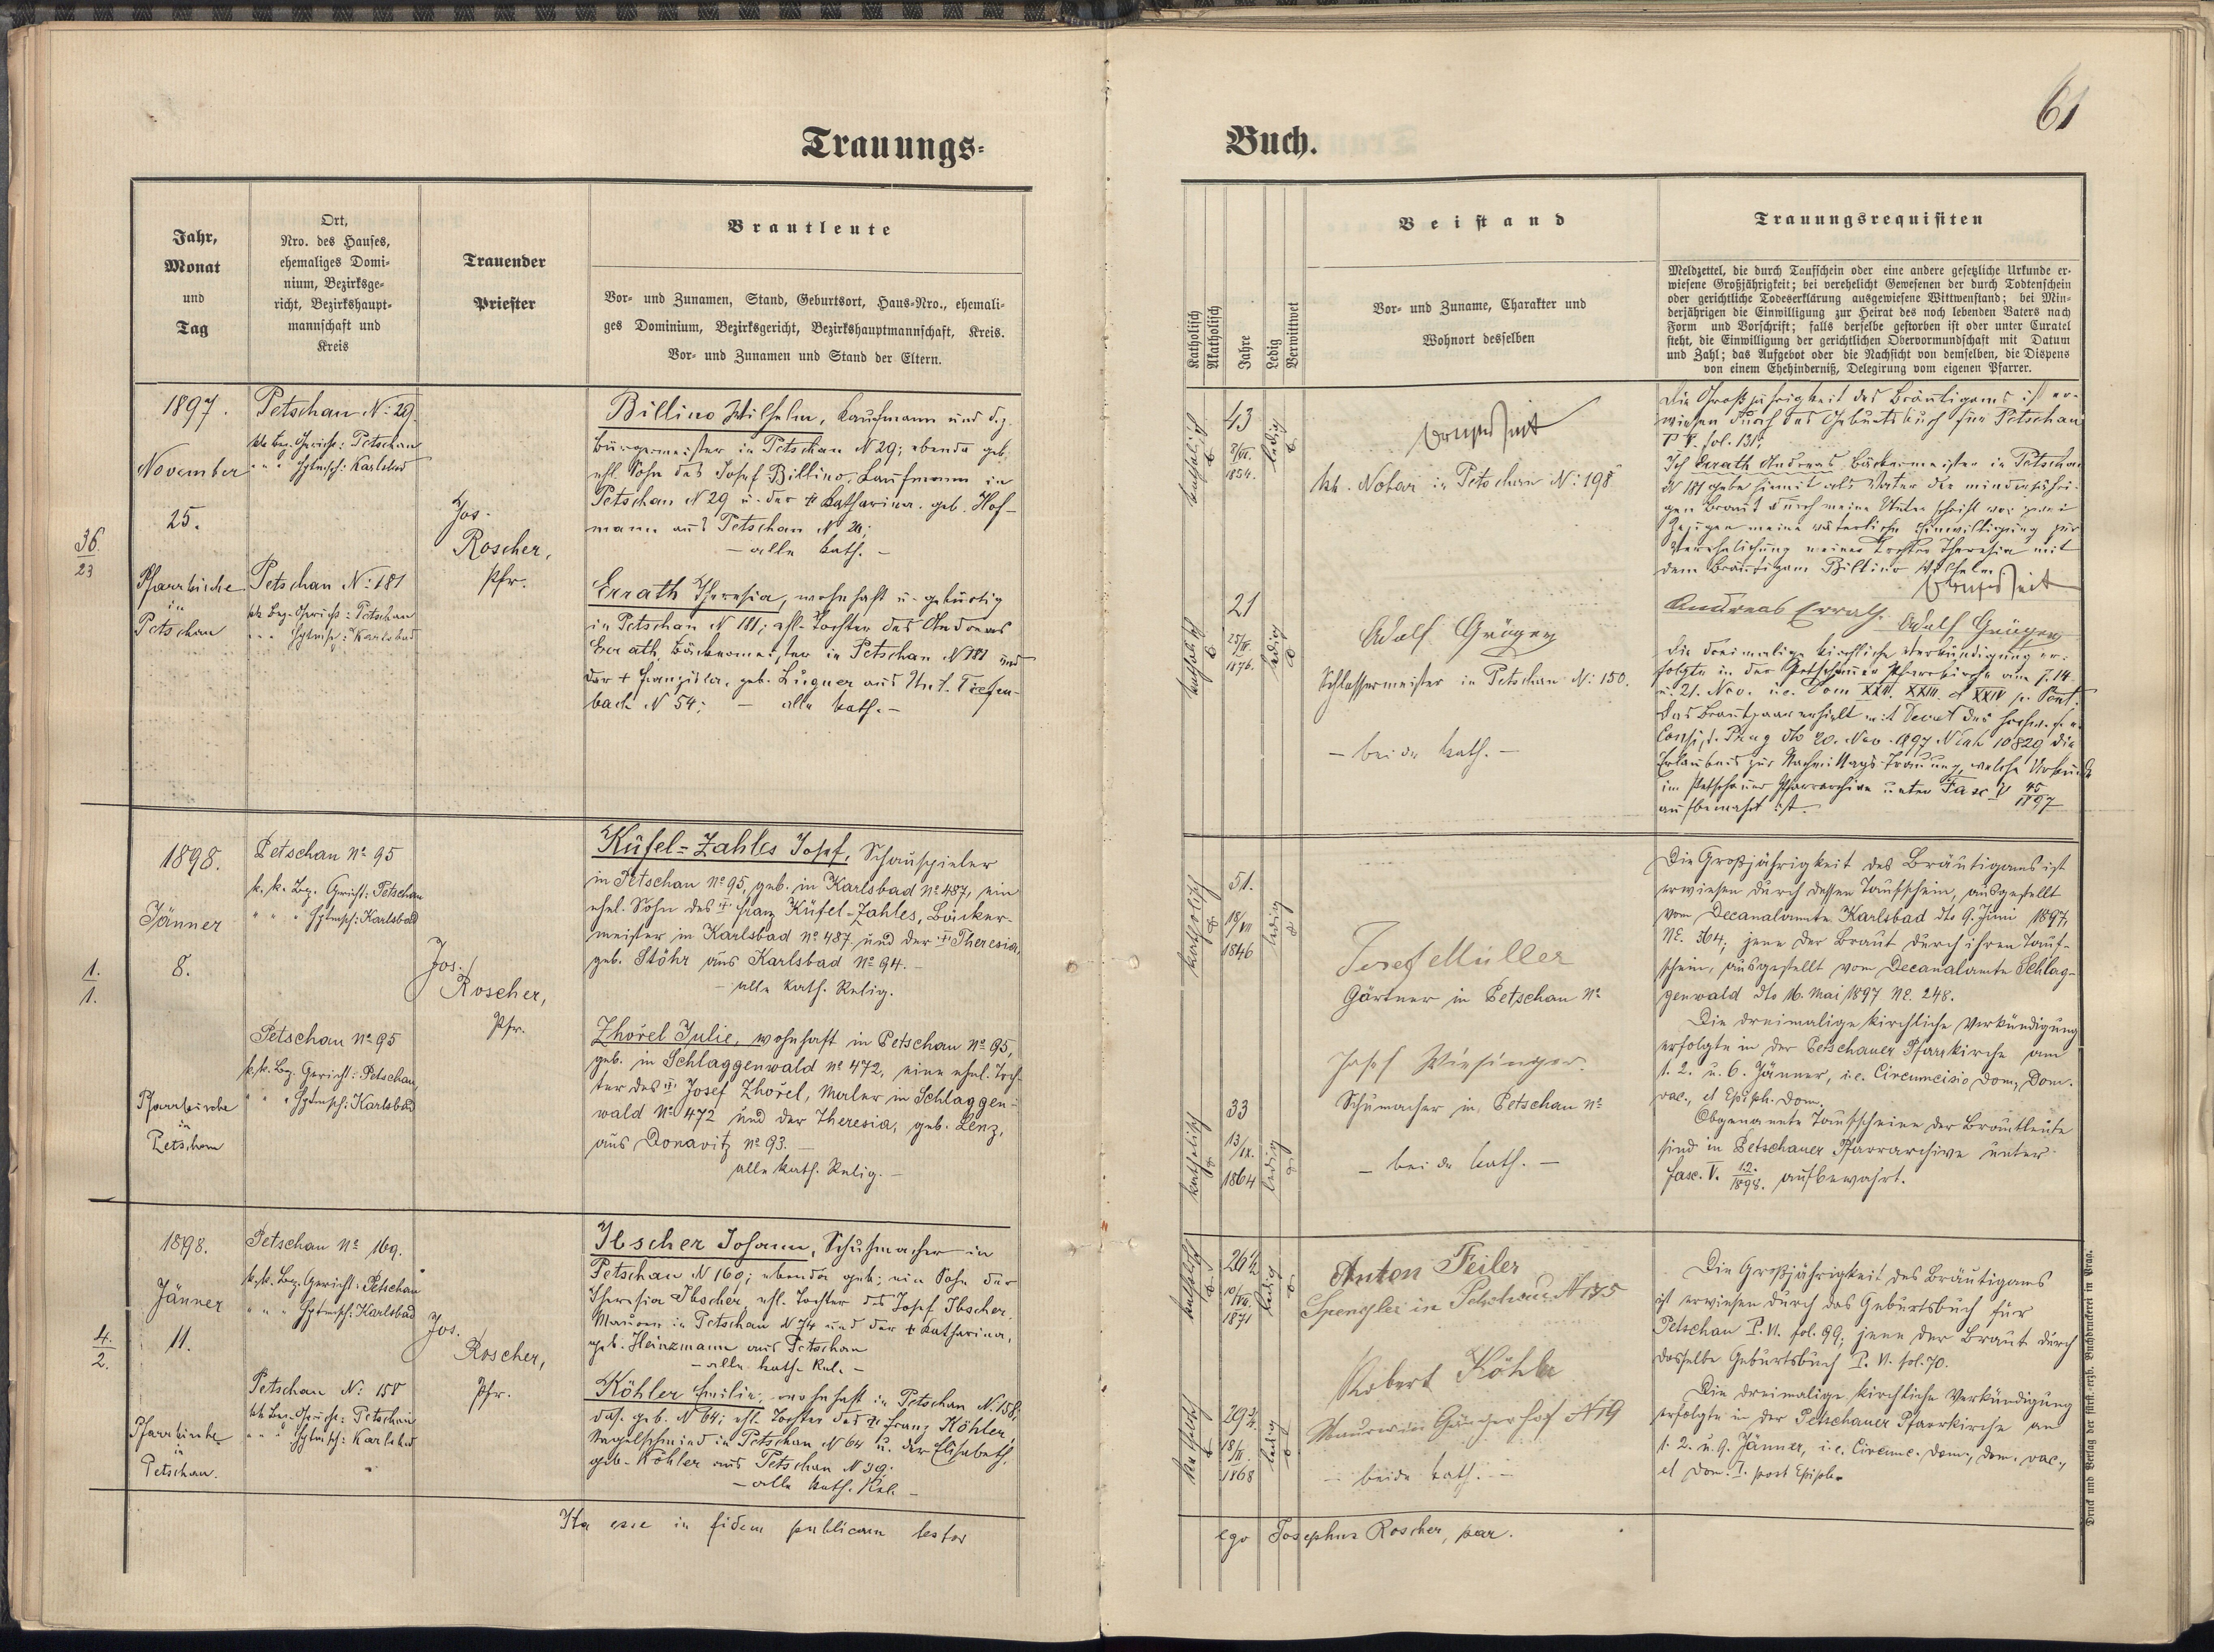 Trauungs-
Jahr,
Monat
und
Tag
Ort,
Nro. des Hauses,
ehemaliges Domi-
nium, Bezirksge-
richt, Bezirkshaupt-
mannschaft und
Kreis
Trauender
Priester
Brautleute
Vor- und Zunamen, Stand, Geburtsort, Haus-Nro., ehemali-
ges Dominium, Bezirksgericht, Bezirkshauptmannschaft, Kreis.
Vor- und Zunamen und Stand der Eltern.
36.
23
1897.
November
25.
Pfarrkirche
in
Petschau
Petschau N: 29
kk Bez. Gericht: Petschau
" " " Hptmsch: Karlsbad
Petschau N: 181
kk Bez. Gericht: Petschau
" " " Hptmsch: Karlsbad
Jos.
Roscher,
Pfr.
Billino Wilhelm, Kaufmann und d.z.
Bürgermeister in Petschau N 29; ebenda geb.
ehl. Sohn des Josef Billino, Kaufmann in
Petschau N 29 u. der + Katharina, geb. Hof-
mann aus Petschau N
– alle kath. –
Errath Theresia, wohnhaft u. gebürtig
in Petschau N 181; ehl. Tochter des Andreas
Errath, Bäckermeister in Petschau N 181 und
der + Franziska, geb. Lugner aus Unt. Tiefen-
bach N 54; – alle kath. –
1.
1.
1898.
Jänner
8.
Pfarrkirche
in
Petschau
Petschau No 95
k.k. Bez. Gericht: Petschau
" " " Hptmsch: Karlsbad
Petschau No 95
k.k. Bez. Gericht: Petschau,
" " " Hptmsch: Karlsbad
Jos.
Roscher,
Pfr.
Küfel-Zahles Josef, Schauspieler
in Petschau No 95, geb. in Karlsbad No 487, ein
ehel. Sohn des + Franz Küfel-Zahles, Bäcker-
meister in Karlsbad No 487 und der + Theresia,
geb. Stöhr aus Karlsbad No 94. –
– alle kath. Relig.
Zhořel Julie, wohnhaft in Petschau No 95,
geb. in Schlaggenwald No 472, eine ehel. Toch-
ter des + Josef Zhořel, Maler in Schlaggen-
wald No 472 und der Theresia, geb. Lenz,
aus Donavitz No 93. –
alle kath. Relig. –
4.
2.
1898.
Jänner
11.
Pfarrkirche
in
Petschau.
Petschau No 169.
k.k. Bez. Gericht: Petschau
" " " Hptmsch: Karlsbad
Petschau N: 158
kk Bez. Gericht: Petschau
" " " Hptmsch: Karlsbad
Jos.
Roscher,
Pfr.
Ibscher Johann, Schuhmacher in
Petschau N 169; ebenda geb; ein Sohn der
Theresia Ibscher, ehl. Tochter des Josef Ibscher,
Maurer in Petschau N 74 und der + Katharina,
geb. Heinzmann aus Petschau
– alle kath. Rel. –
Köhler Emilie, wohnhaft in Petschau N. 158,
das. geb. N 64; ehl. Tochter des + Franz Köhler,
Nagelschmied in Petschau N 64 u. der Elisabeth,
geb. Köhler aus Petschau N 39.
– alle kath. Rel. –
Ita esse in fidem publicam testor
61
Buch.
Katholisch
Akatholisch
Jahre
Ledig
Verwittwet
Beistand
Vor- und Zuname, Charakter und
Wohnort desselben
Trauungsrequisiten
Meldzettel, die durch Taufschein oder eine andere gesetzliche Urkunde er-
wiesene Großjährigkeit; bei verehelicht Gewesenen der durch Todtenschein
oder gerichtliche Todeserklärung ausgewiesene Wittwenstand; bei Min-
derjährigen die Einwilligung zur Heirat des noch lebenden Vaters nach
Form und Vorschrift; falls derselbe gestorben ist oder unter Curatel
steht, die Einwilligung der gerichtlichen Obervormundschaft mit Datum
und Zahl; das Aufgebot oder die Nachsicht von demselben, die Dispens
von einem Ehehinderniß, Delegirung vom eigenen Pfarrer.
katholisch
43
1854.
ledig
kk. Notar in Petschau N: 198
katholisch
21
1876.
ledig
Adolf Gröger
Schlossermeister in Petschau N: 150.
– beide kath. –
Die Großjährigkeit des Bräutigams ist er-
wiesen durch das Geburtsbuch für Petschau
T V. fol. 131;
Ich Errath Andreas, Bäckermeister in Petschau
N 181 gebe hiemit als Vater der minderjähri-
gen Braut durch meine Unterschrift vor zwei
Zeugen meine väterliche Einwilligung zur
Verehelichung meiner Tochter Theresia mit
dem Bräutigam Billino Wilhelm
Andreas Errath. Adolf Gröger
Die dreimalige kirchliche Verkündigung er-
folgte in der Petschauer Pfarrkirche am 7. 14.
u. 21. Nov. i.e. Dom XXII. XXIII. & XXIV p. Pent.
Das Brautpaar erhielt mit Decret des hochw. f. e.
Consist. Prag dto 20. Nov. 1897 N Exh 10829 die
Erlaubnis zur Nachmittags-Trauung, welche Urkunde
im Petschauer Pfarrarchive unter Fasc V 45/1897
aufbewahrt ist.
katholisch
51.
18/VII
1846
ledig
Josef Müller
Gärtner in Petschau No
katholisch
33
13/IX.
1864
ledig
Josef Wiesinger.
Schumacher in Petschau No
– beide kath. –
Die Großjährigkeit des Bräutigams ist
erwiesen durch dessen Taufschein, ausgestellt
vom Decanalamte Karlsbad dto 9. Juni 1897,
NE. 364; jene der Braut durch ihren Tauf-
schein, ausgestellt vom Decanalamte Schlag-
genwald dto 16. Mai 1897 NE. 248.
Die dreimalige kirchliche Verkündigung
erfolgte in der Petschauer Pfarrkirche am
1. 2. u. 6. Jänner, i.e. Circumcisio Dom., Dom.
vac., et Epiph. Dom.
Obgenannte Taufscheine der Brautleute
sind in Petschauer Pfarrarchive unter
Fasc. V. 1.2./1898. aufbewahrt.
katholisch
26½
10/VII.
1871
ledig
Anton Feiler
Spengler in Petschau N 185
katholisch
29¾
1868
ledig
Robert Köhler
Maurer in Gängerhof N 19
– beide kath. –
Die Großjährigkeit des Bräutigams
ist erwiesen durch das Geburtsbuch für
Petschau T. VI. fol. 99; jene der Braut durch
dasselbe Geburtsbuch T. VI. fol. 70.
Die dreimalige kirchliche Verkündigung
erfolgte in der Petschauer Pfarrkirche am
1. 2. u. 9. Jänner, i.e. Circumc. Dom., Dom. vac.,
et Dom. I. post Epiph.
ego Josephus Roscher, par.
Druck und Verlag der fürst.-erzb. Buchdruckerei in Prag.